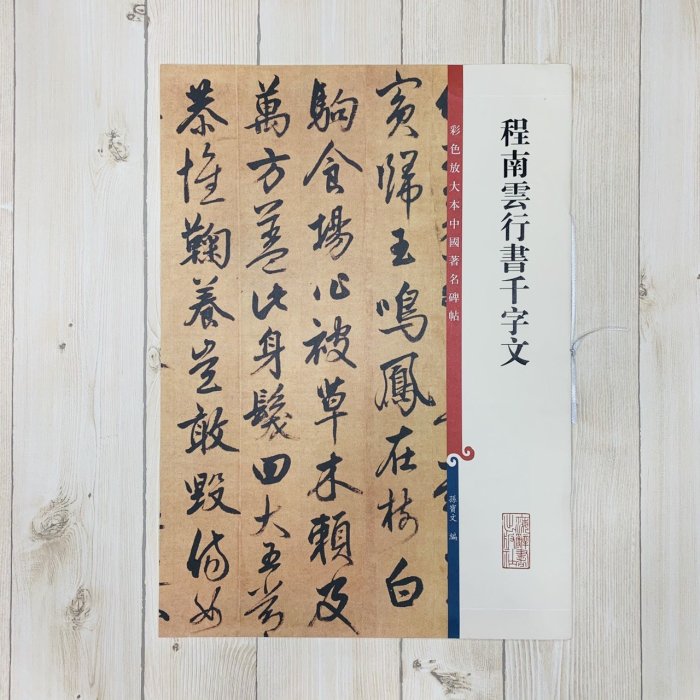 程南雲行書千字文
彩色放大本中國著名碑帖
孫寶文 編
賓歸王鳴鳳在樹白
駒食場化被草木賴及
萬方蓋此身髮四大五常
恭惟鞠養豈敢毀傷女